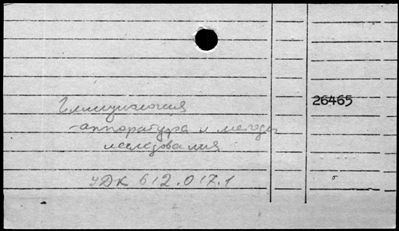 26465
аппаратура и методы
исследования
УДК 612.017.1